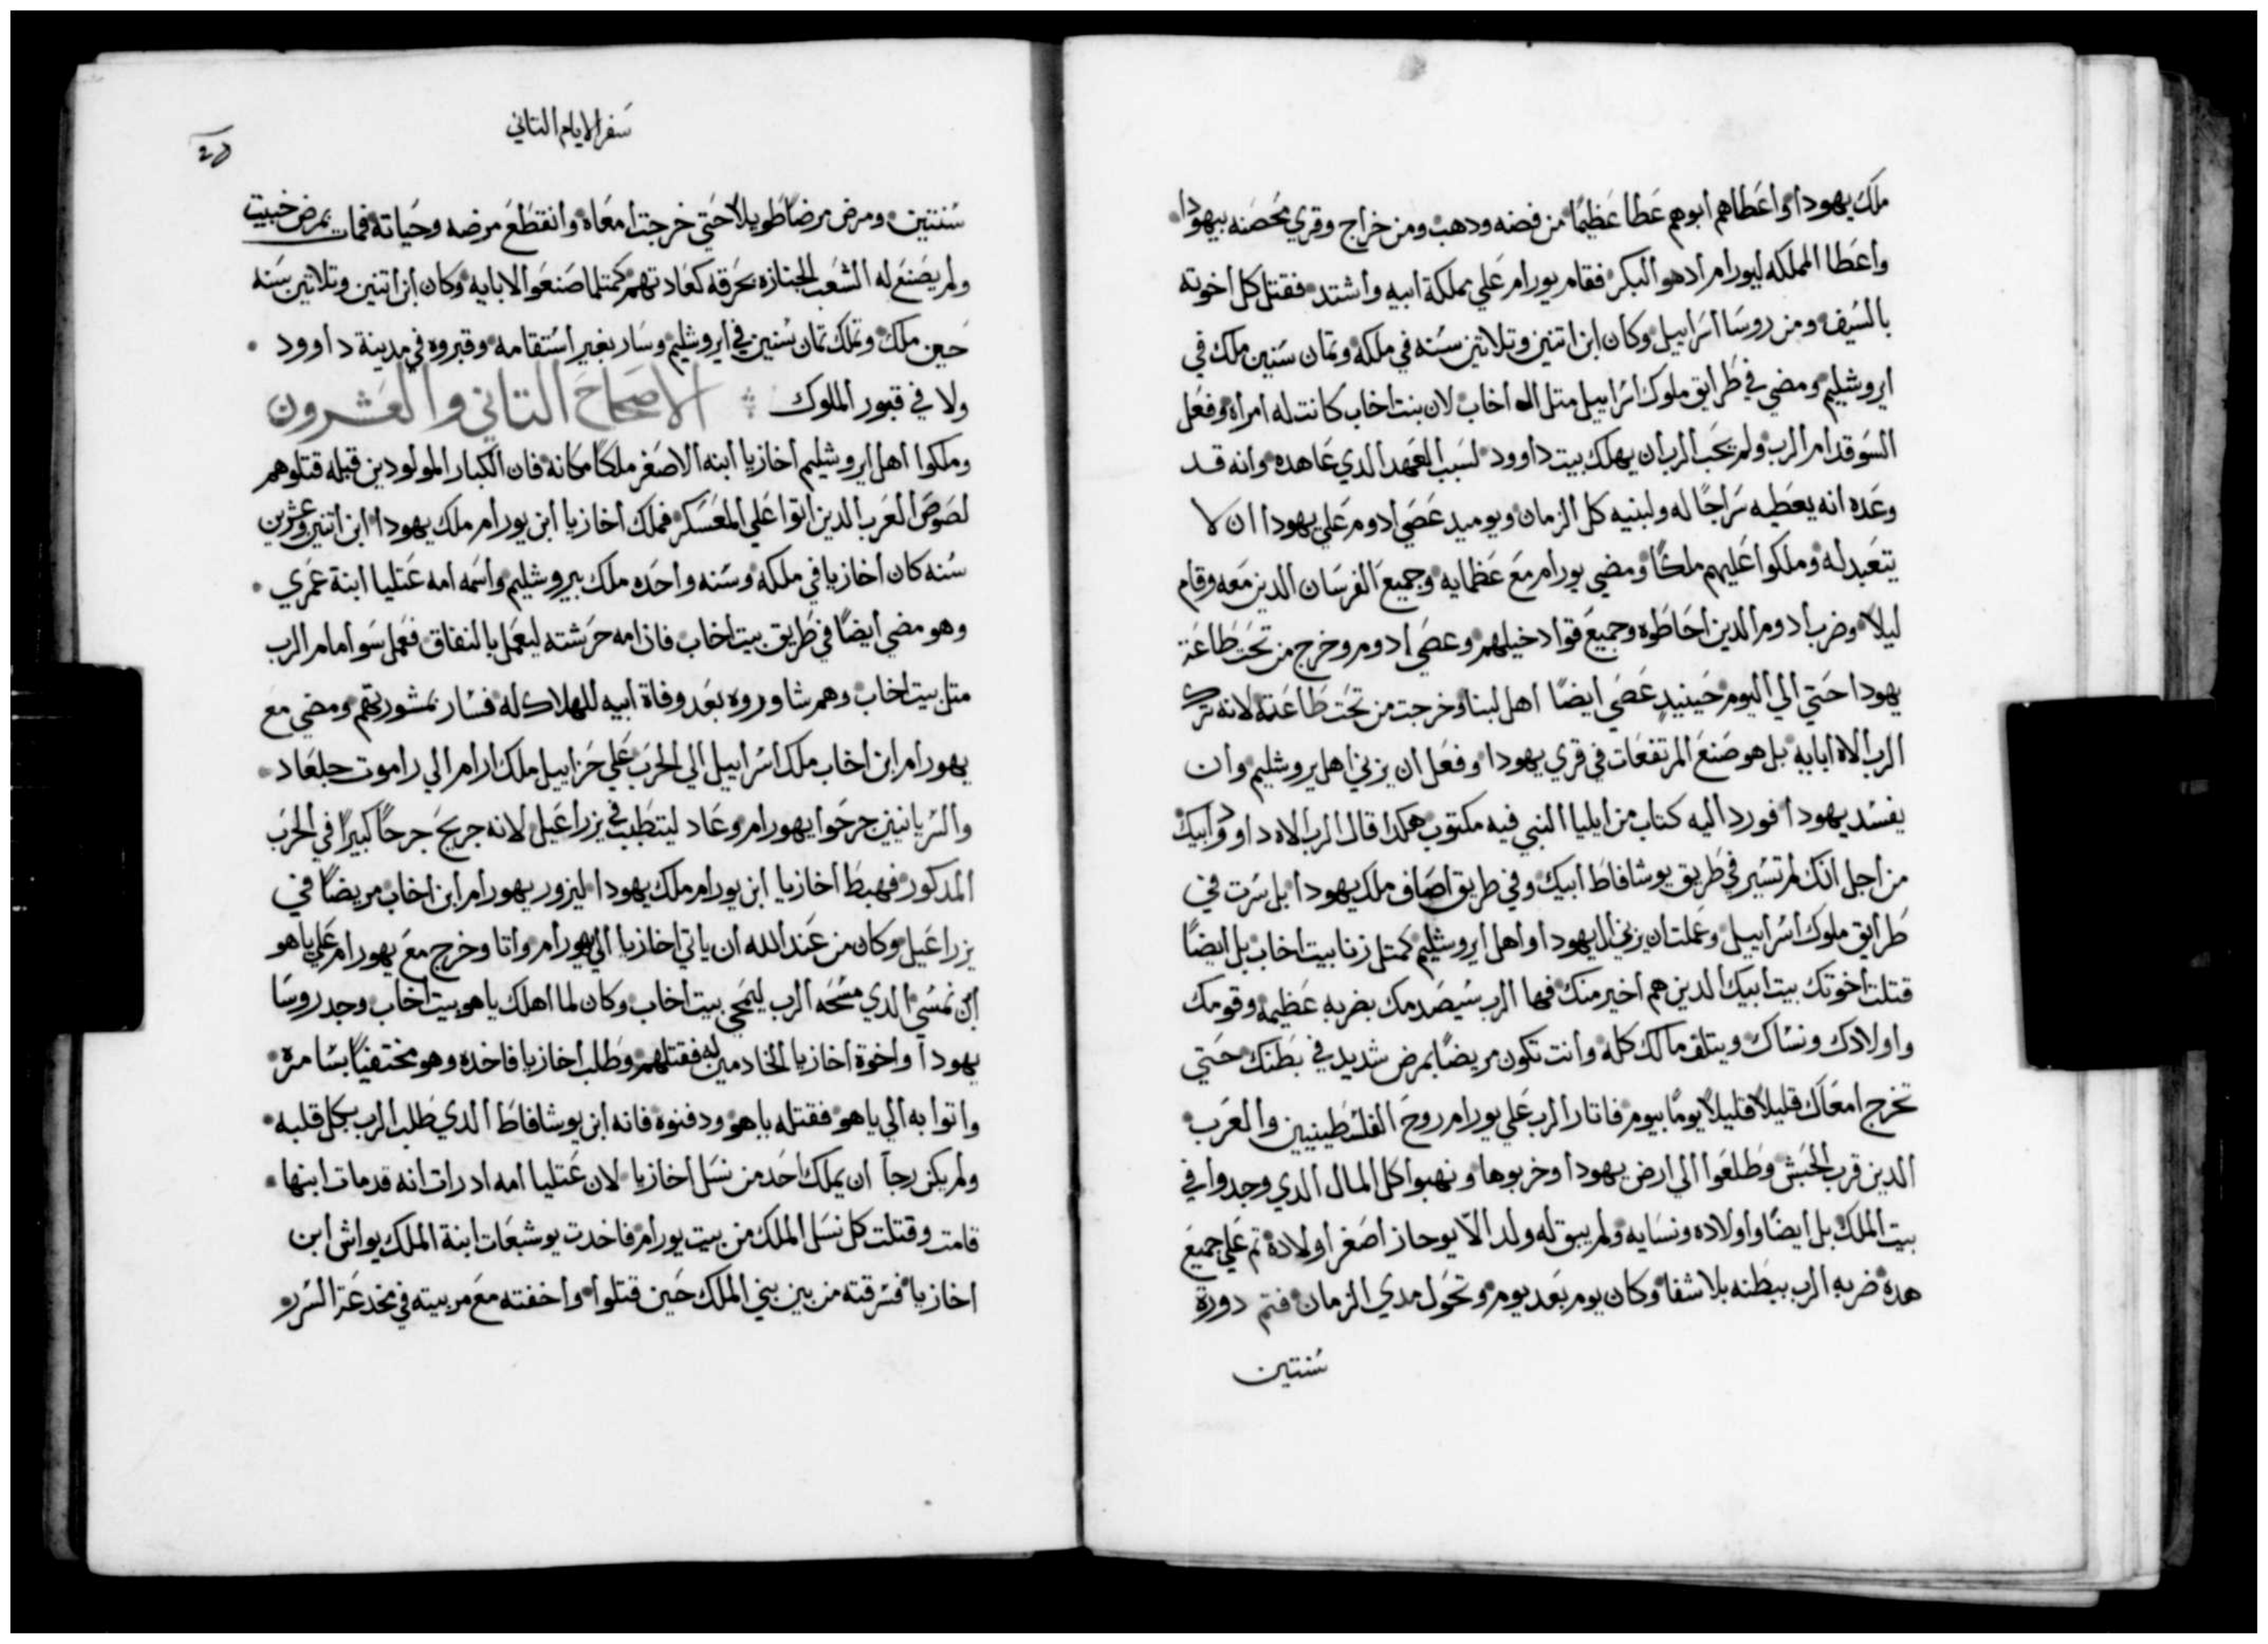 ملك يهودا واعطاهم ابوهم عطا عظيمًا من فضه ودهب ومن خراج وقري محصنه بيهودا
واعطا المملكه ليورام ادهو البكر فقام يورام علي مملكة ابيه واشتد فقتل كل اخوته
بالسيف ومن روسا اسراييل وكان ابن اتنين وتلاتين سنه في ملكه وتمان سنين ملك في
ايروشليم ومضي في طرايق ملوك اسراييل متل اله اخاب لان بنت اخاب كانت له امراه وفعل
السو قدام الرب ولم يحب الرب ان يهلك بيت داوود لسبب العهد الدي عاهده وانه قد
وعده انه يعطيه سراجًا له ولبنيه كل الزمان ويوميد عصي ادوم علي يهودا ان لا
يتعبد له وملكوا عليهم ملكًا ومضي يورام مع عظمايه وجميع الفرسان الدين معه وقام
ليلاً وضرب ادوم الدين احاطوه وجميع قواد خيلهم وعصي ادوم وخرج من تحت طاعة
يهودا حتي الي اليوم حينيدٍ عصي ايضًا اهل لبنا وخرجت من تحت طاعته لانه ترك
الرب الاه ابايه بل هو صنع المرتفعات في قري يهودا وفعل ان يزني اهل يروشليم وان
يفسد يهودا فورد اليه كتاب من ايليا النبي فيه مكتوب هكدا قال الرب الاه داوود ابيك
من اجل انك لم تسير في طريق يوشافاط ابيك وفي طريق اصاف ملك يهودا بل سرت في
طرايق ملوك اسراييل وعملت ان يزني ال يهودا واهل ايروشليم كمتل زنا بيت اخاب بل ايضًا
قتلت اخوتك بيت ابيك الدين هم اخير منك فها الرب سيصدمك بضربه عظيمه وقومك
واولادك ونساك ويتلف مالك كله وانت تكون مريضًا بمرض شديد في بطنك حتي
تخرج امعاك قليلاً قليلاً يومًا بيوم فاتار الرب علي يورام روح الفلسطينيين والعرب
الدين قرب الحبش وطلعوا الي ارض يهودا وخربوها ونهبوا كل المال الدي وجدوا في
بيت الملك بل ايضًا واولاده ونسايه ولم يبق له ولد الاّ يوحاز اصغر اولاده تم علي جميع
هده ضربه الرب ببطنه بلا شفا وكان يوم بعد يوم وتحول مدي الزمان فتم دورة
سنتين
سفر الايام التاني
سنتين ومرض مرضًا طويلاً حتي خرجت امعاه وانقطع مرضه وحياته فمات بمرض خبيت
ولم يصنع له الشعب الجنازه بحرقه كعادتهم كمتلما صنعوا لابايه وكان ابن اتنين وتلاتين سنه
حين ملك وتملك تمان سنين في ايروشليم وسار بغير استقامه وقبروه في مدينة داوود
ولا في قبور الملوك الاصحاح التاني والعشرون
وملكوا اهل ايروشليم اخازيا ابنه الاصغر ملكًا مكانه فان الكبار المولودين قبله قتلوهم
لصوص العرب الدين اتوا علي المعسكر فملك اخازيا ابن يورام ملك يهودا ابن اتنين وعشرين
سنه كان اخازيا في ملكه وسنه واحده ملك بيروشليم واسمه امه عتليا ابنة عمري
وهو مضي ايضًا في طريق بيت اخاب فان امه حرشته ليعمل بالنفاق فعمل سو امام الرب
متل بيت اخاب وهم شاوروه بعد وفاة ابيه للهلاك له فسار بمشورتهم ومضي مع
يهورام ابن اخاب ملك اسراييل الي الحرب علي حزاييل ملك ارام الي راموت جلعاد
والسريانيين جرحوا يهورام وعاد ليتطبب في يزراعيل لانه جريح جرحًا كبيرًا في الحرب
المدكور فهبط اخازيا ابن يورام ملك يهودا ليزور يهورام ابن اخاب مريضًا في
يزراعيل وكان من عند الله ان ياتي اخازيا الي يهورام واتا وخرج مع يهورام علي ياهو
ابن نمسي الدي مسحه الرب ليمحي بيت اخاب وكان لما اهلك ياهو بيت اخاب وجد روسا
يهودا واخوة اخازيا الخادمين له فقتلهم وطلب اخازيا فاخده وهو مختفيًا بسامره
واتوا به الي ياهو فقتله ياهو ودفنوه فانه ابن يوشافاط الدي طلب الرب بكل قلبه
ولم يكن رجآ ان يملك احد من نسل اخازيا لان عتليا امه اد رات انه قد مات ابنها
قامت وقتلت كل نسل الملك من بيت يورام فاخدت يوشبعات ابنة الملك يواش ابن
اخازيا فسرقته من بين بني الملك حين قتلوا واخفته مع مربيته في مخدعة السرر